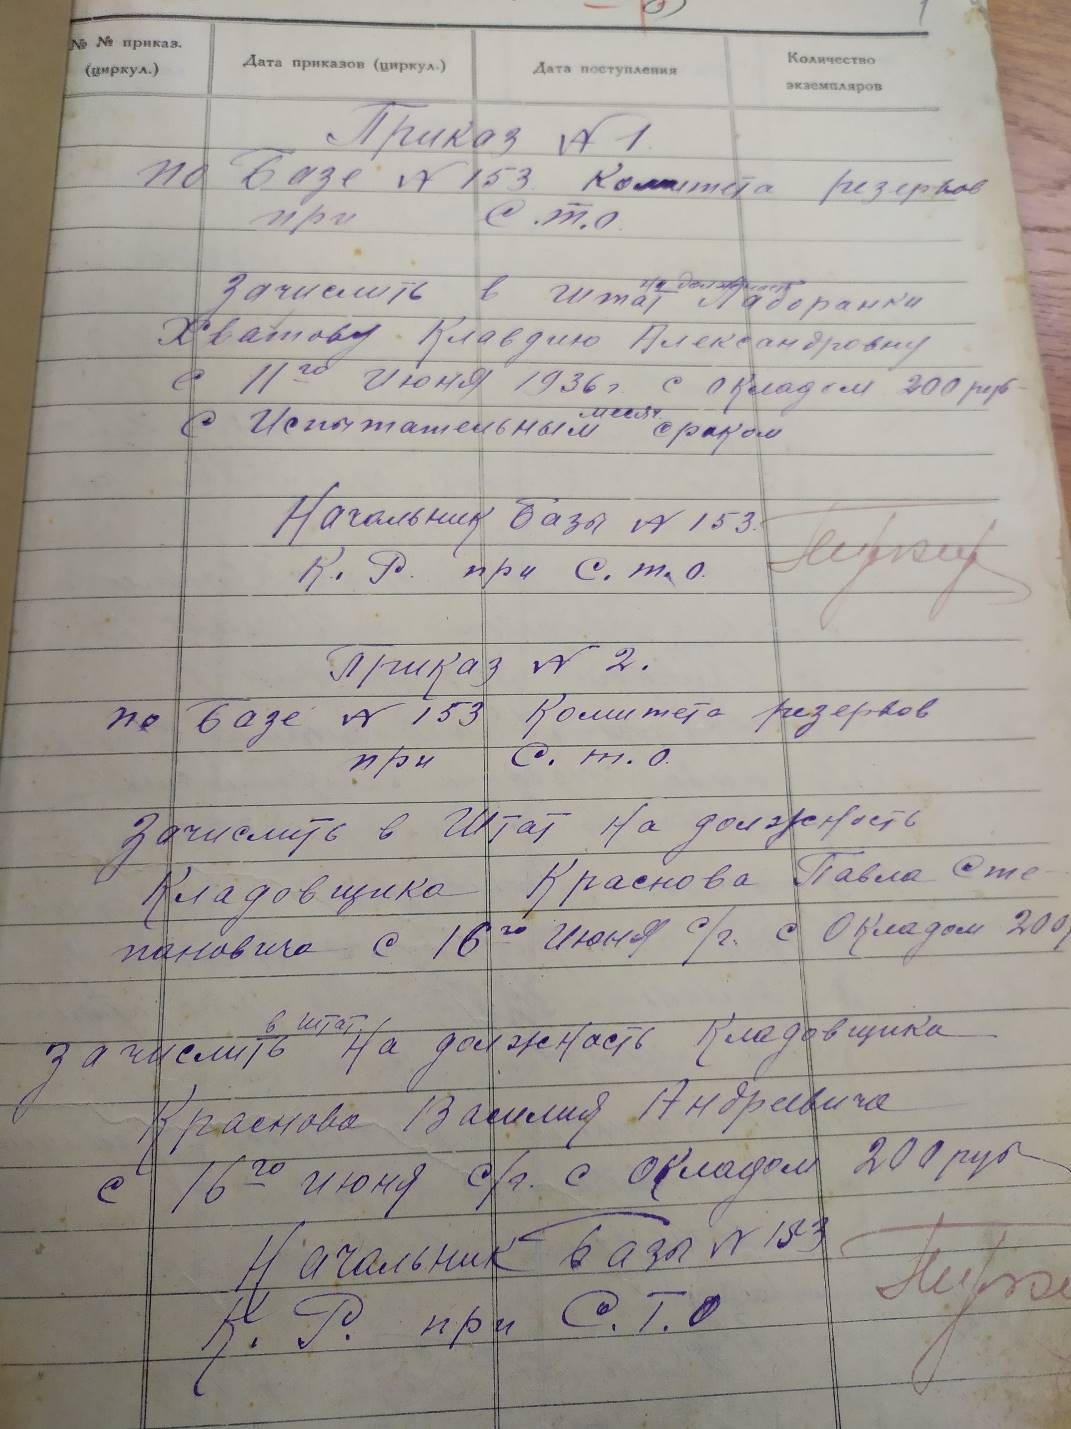 1
№ № приказ. (циркул.)
Дата приказов (циркул.)
Дата поступления
Количество экземпляров
Приказ № 1.
по Базе № 153 Комитета резервов
при С.т.о.
на должность
Зачислить в штат Лаборанки
Хватову Клавдию Александровну
с 11го Июня 1936 г. с окладом 200 руб
месяч
с Испытательным сроком
Начальник Базы № 153.
К. Р. при С. т. о.
Приказ № 2.
по Базе № 153 Комитета резервов
при С. т. о.
Зачислить в Штат на должность
Кладовщика Краснова Павла Сте-
пановича с 16го Июня с/г. с Окладом 200р
в штат
Зачислить на должность Кладовщика
Краснова Василия Андреевича
с 16го июня с/г. с окладом 200 руб
Начальник Базы № 153
К. Р. при С. Т. О